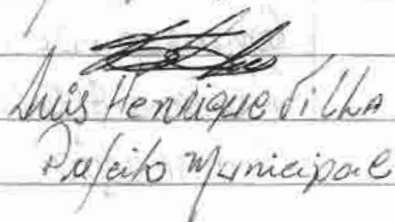 Luis Henrique Villa
Prefeito Municipal